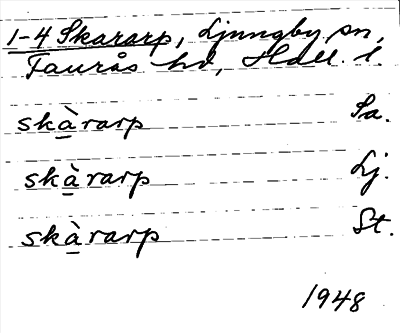 1-4 Skararp, Ljungby sn,
Faurås hd, Hall. l.
skàrarp Sa.
skàrarp Lj.
skàrarp St.
1948